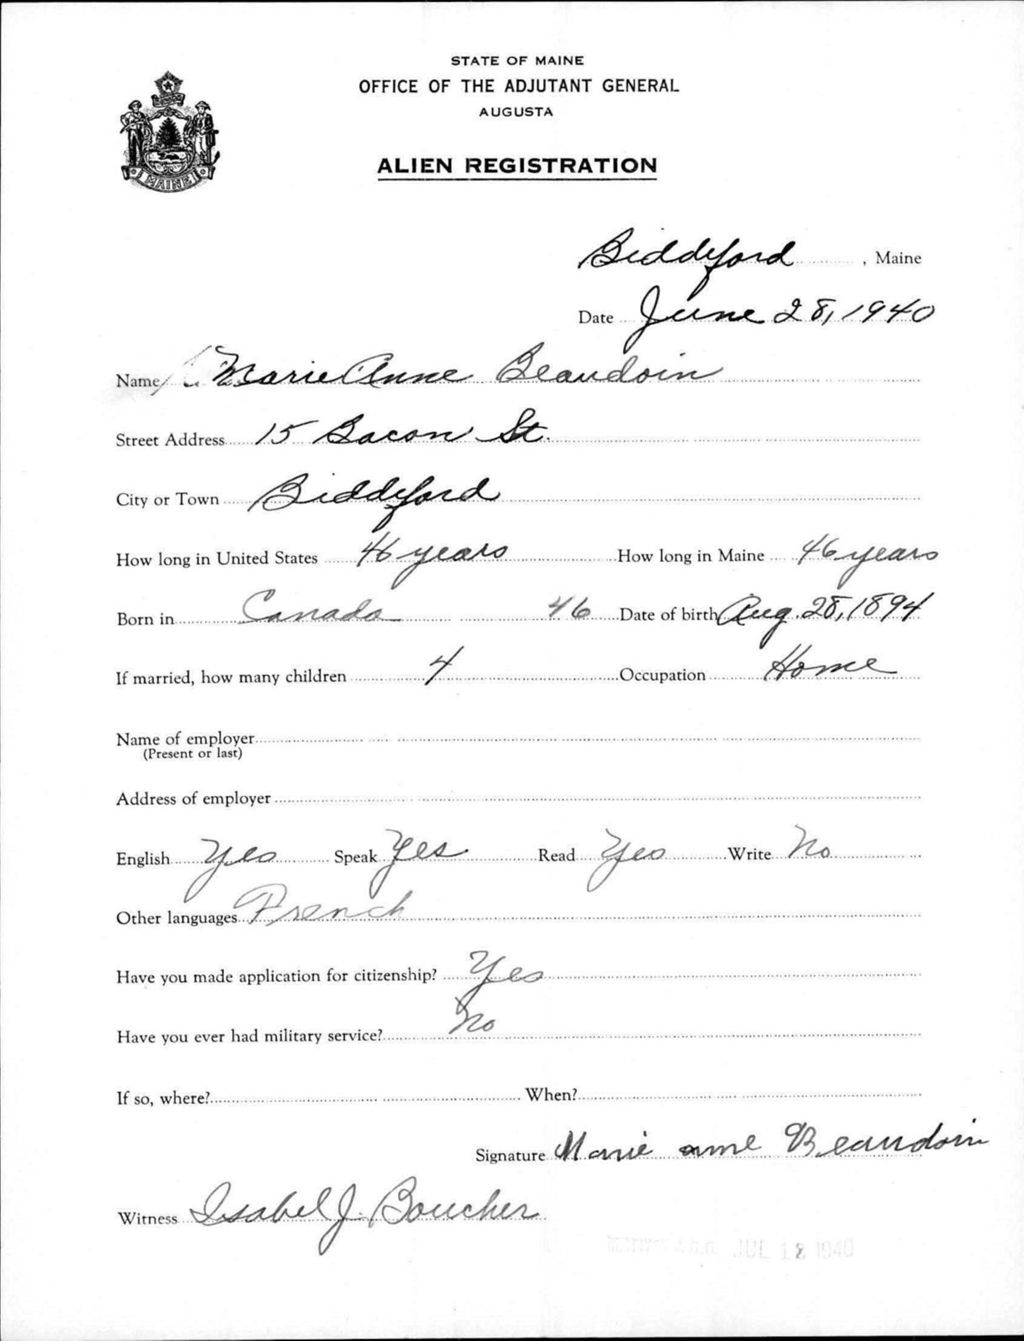 STATE OF MAINE
OFFICE OF THE ADJUTANT GENERAL
AUGUSTA
ALIEN REGISTRATION
MAINE
Biddeford, Maine
Date June 28, 1940
Name Marie Anne Beaudoin
Street Address 15 Bacon St.
City or Town Biddeford
How long in United States 46 years How long in Maine 46 years
Born in Canada 46 Date of birth Aug. 28, 1894
If married, how many children 4 Occupation Home
Name of employer
(Present or last)
Address of employer
English Yes Speak Yes Read Yes Write No
Other languages French
Have you made application for citizenship? Yes
Have you ever had military service? No
If so, where? When?
Signature Marie anne Beaudoin
Witness Isabel J. Boucher
JUL 12 1940